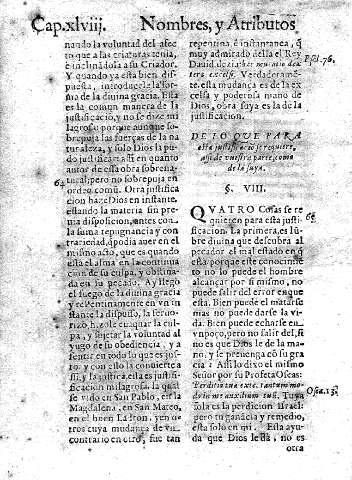 Cap.xlviij. Nombres, y Atributos
nando la voluntad del afec
to que a las criaturas tenia,
e inclinādola a su Criador.
Y quando ya està bien dis
puesta, introducele la for
ma de la diuina gracia. Esta
es la comun manera de la
justificació, y no se dize mi
lagrosa, porque aunque so-
brepuja las fuerças de la na
turaleza, y solo Dios la pu
do justificar assi en quanto
autor de essa obra sobrena
tural, pero no sobrepuja en
64
ordẽ comũ. Otra justifica
cion haze Dios en instante,
estando la materia sin pre
mia disposicion, antes con
la suma repugnancia y con
trariedad, q̃ podia auer en el
mismo acto, que es quando
està el alma en la continua
cion de su culpa, y obstina-
da en su pecado. Ay llegò
el fuego de la diuina gracia
y repentinamente en vn in
stante la dispuso, la feruo-
rizò, hizole escupir la cul-
pa, y sujetar la voluntad al
yugo de su obediencia, y a
sentir en todo lo que es jus-
to, y con ello la conuierte a
si, y la justifica. esta es justi-
ficacion milagrosa, la qual
se vido en San Pablo, en la
Magdalena, en San Mateo,
en el buen Ladron, y en o-
tros cuya mudança de vn
contrario en otro, fue tan
repentina, è instantanea, q̃
muy admirado della el Rey
Dauid, dezia: hæc mutatio dex
teræ excelsi. Verdaderamē-
te, esta mudança es de la ex
celsa y poderosa mano de
Dios, obra suya es la de la
justificacion.
Psal. 76.
DE LO QVE PARA
esta justificacion se requiere,
assi de nuestra parte, como
de la suya.
§. VIII.
65
QVATRO Cosas se re
quieren para esta justi
ficacion. La primera, es lũ-
bre diuina que descubra al
pecador el mal estado en
q̃ està porque este conocimiē
to no lo puede el hombre
alcançar por si mismo, no
puede salir del error en que
està. Bien puede el matarse
mas no puede darse la vi-
da. Bien puede echarse en
vn poço, pero no salir del, si
no es que Dios le dè la ma-
no, y le preuenga cõ su gra
cia: Assi lo dixo el mismo
Señor por su Profeta Oseas:
Perditio tua ex te, tantummo-
do in me auxilium tuũ. Tuya
sola es la perdicion Israel:
pero tu ganãcia y remedio,
esta solo en mi. Esta ayu-
da que Dios le dà, no es
Osea. 13.
otra